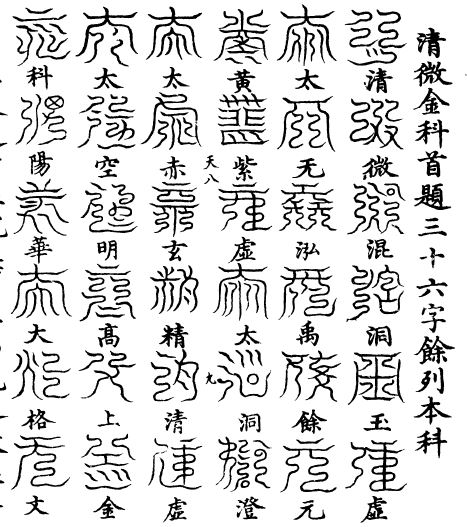 清微金科首題三十六字餘列本科
清微混洞玉虛
太无泓禹餘元
黃紫虛太洞澄
天八
九
太赤玄精清虛
太空明高上金
科陽華大格文